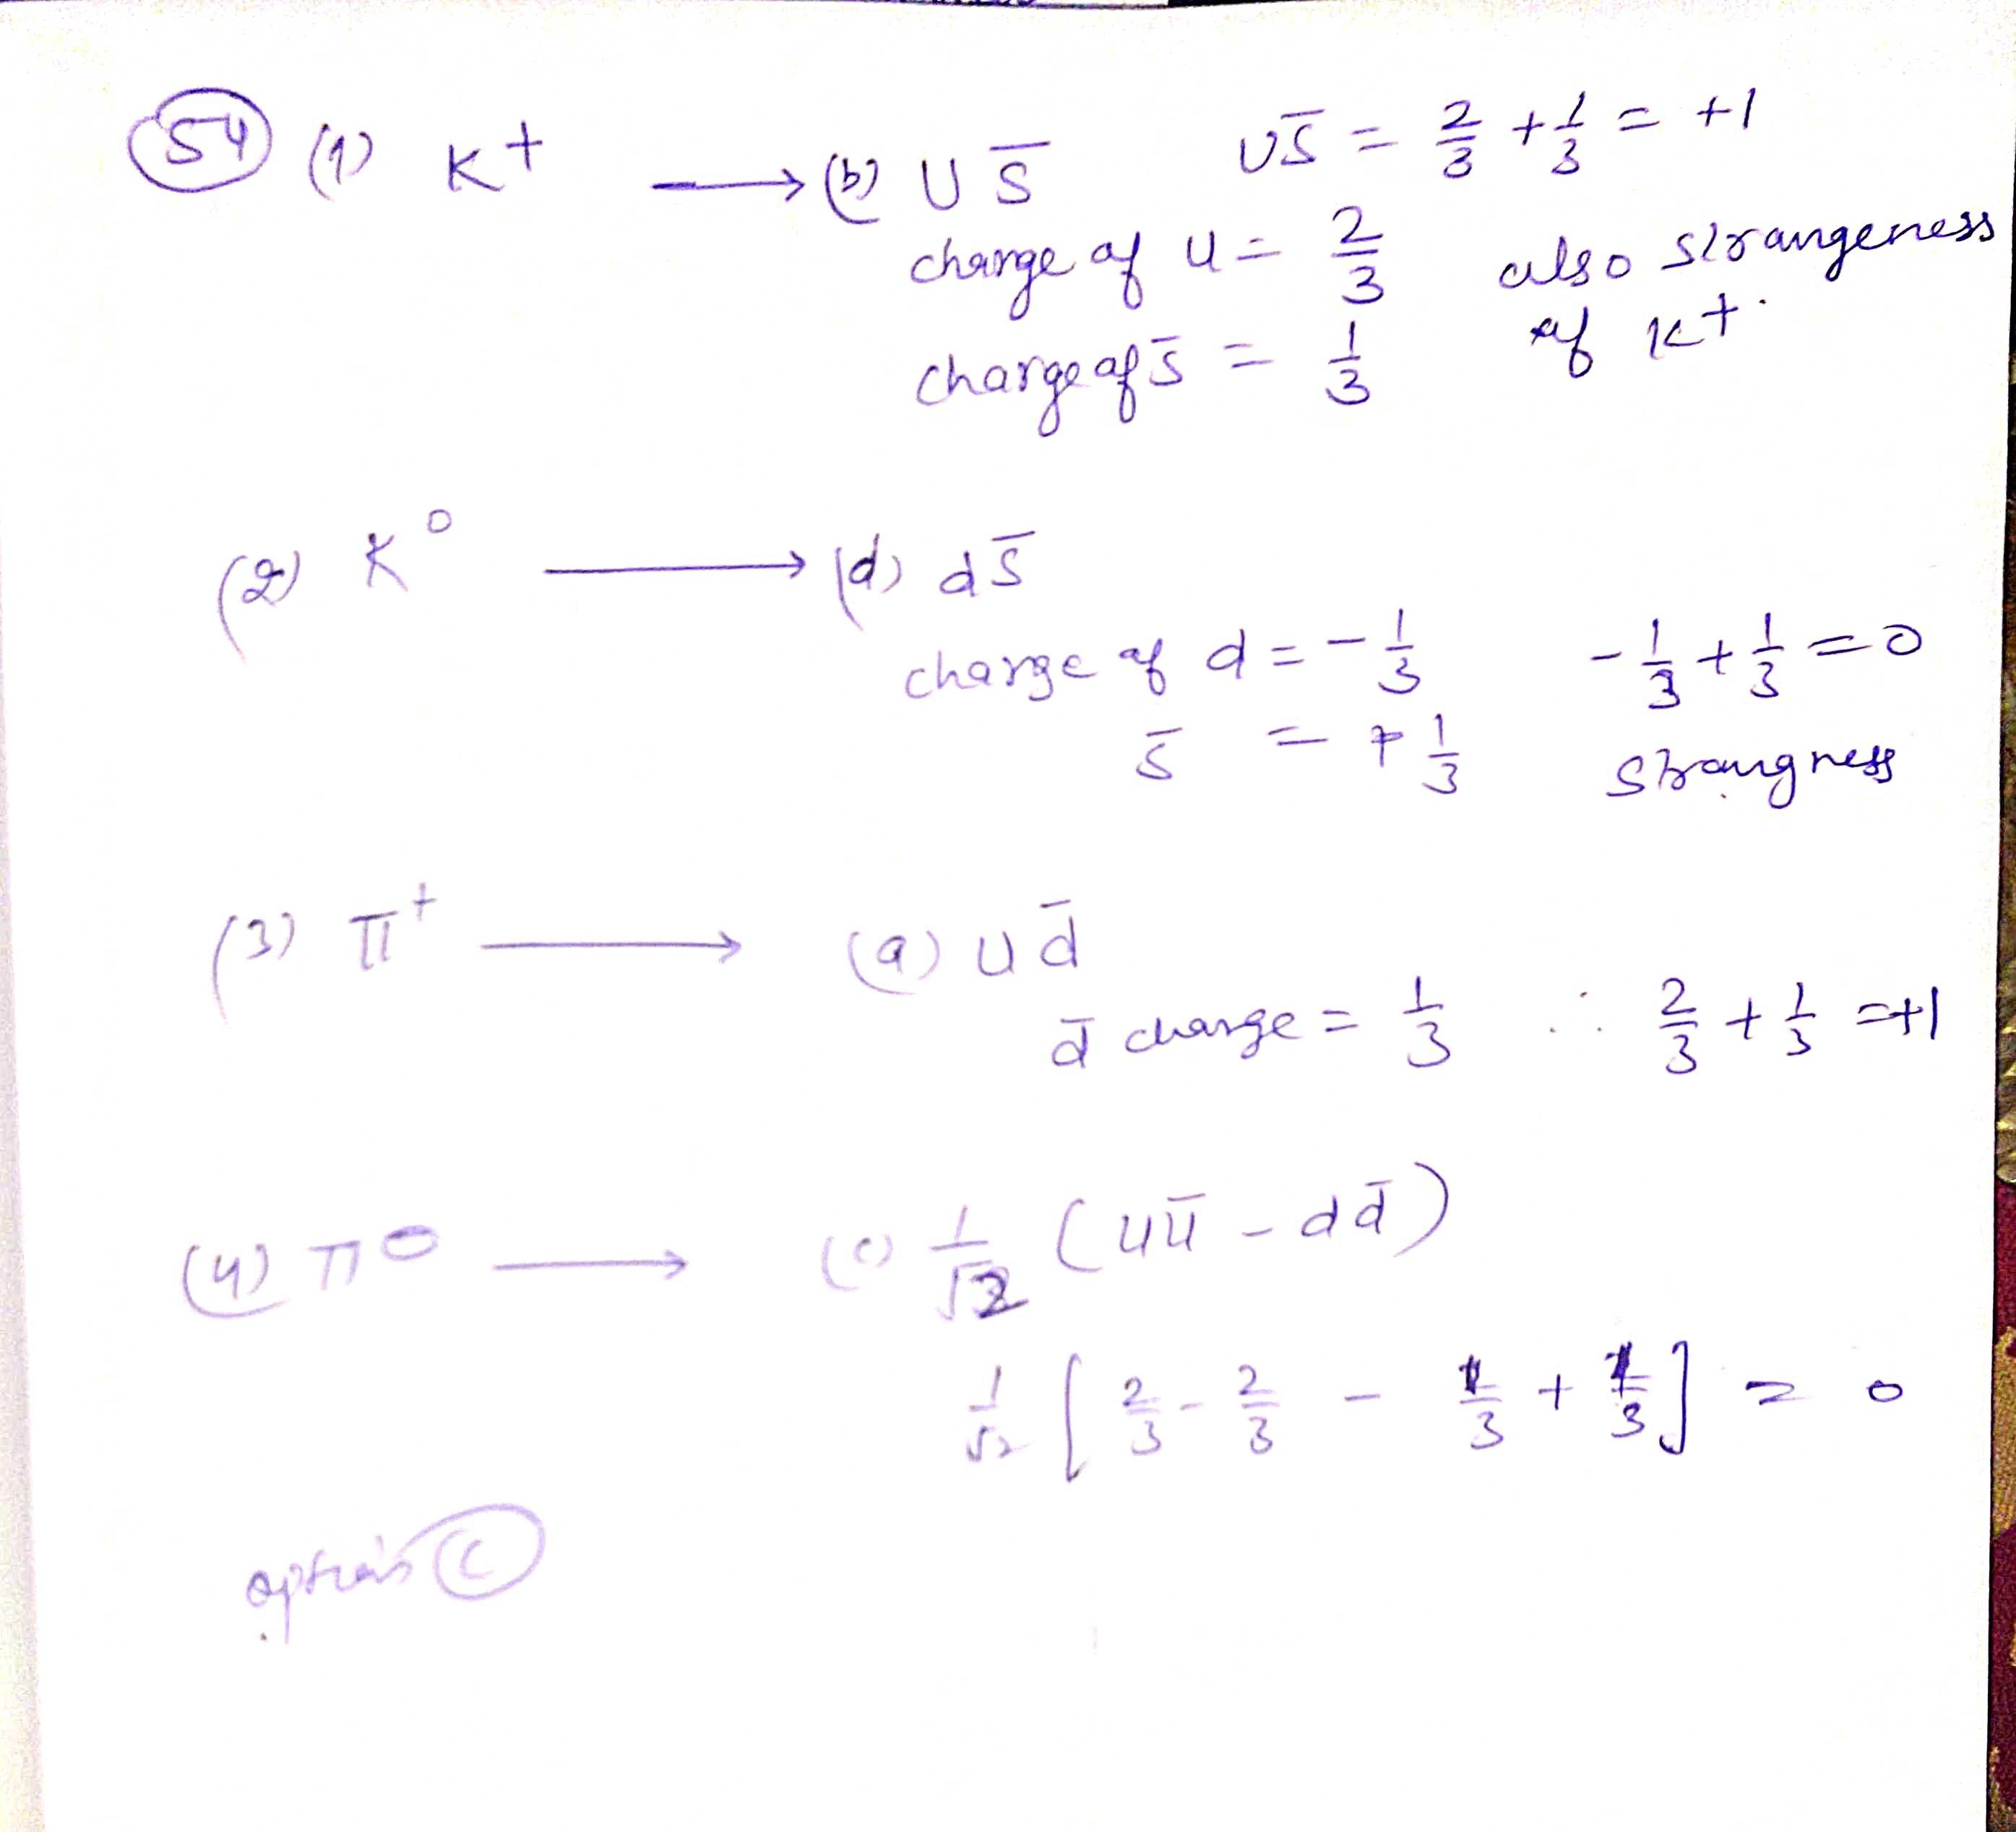 54 (1) K+ → (b) U S̅ US̅ = 2/3 + 1/3 = +1
charge of u = 2/3 also strangeness
charge of s̅ = 1/3 of K+.
(2) K⁰ → (d) d s̅
charge of d = -1/3 -1/3 + 1/3 = 0
s̅ = +1/3 strangness
(3) π⁺ → (a) u d̅
d̅ charge = 1/3 ∴ 2/3 + 1/3 = +1
(4) π⁰ → (c) 1/√2 (uu̅ - dd̅)
1/√2 [2/3 - 2/3 - 1/3 + 1/3] = 0
option C